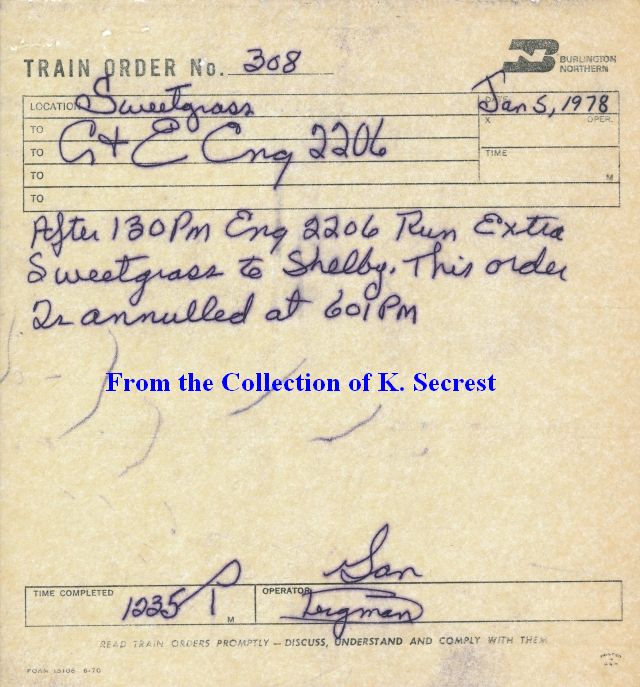 BURLINGTON
NORTHERN
TRAIN ORDER No. 308
LOCATION Sweetgrass
Jan 5, 1978
TO
X OPER.
TO C+E Eng 2206
TIME
TO
M
TO
After 130PM Eng 2206 Run Extra
Sweetgrass to Shelby. This order
Is annulled at 601PM
From the Collection of K. Secrest
TIME COMPLETED 1235 P M
OPERATOR
READ TRAIN ORDERS PROMPTLY — DISCUSS, UNDERSTAND AND COMPLY WITH THEM
FORM 15106 6-70